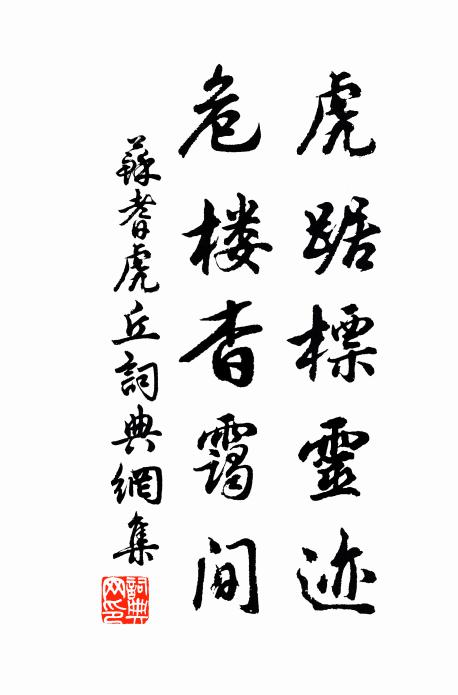 虎踞標靈迹
危楼杳靄间
蘇耆虎丘詞典網集
詞典網印